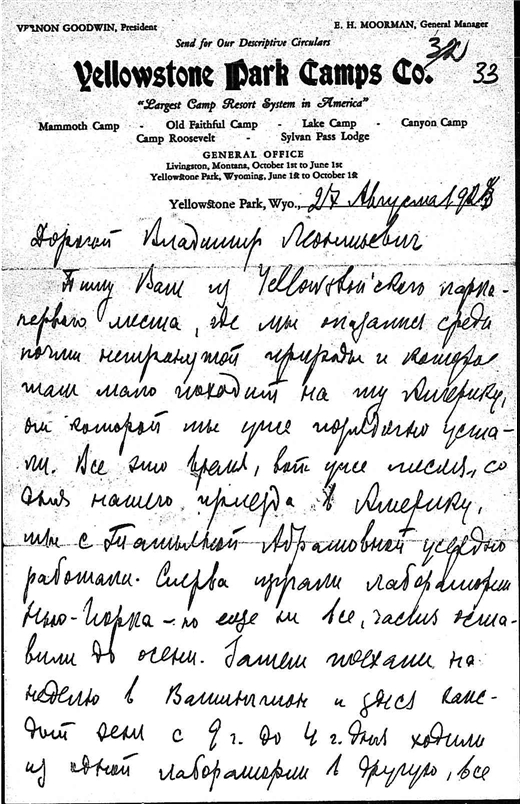 VERNON GOODWIN, President
E. H. MOORMAN, General Manager
Send for Our Descriptive Circulars
Yellowstone Park Camps Co.
33
"Largest Camp Resort System in America"
Mammoth Camp - Old Faithful Camp - Lake Camp - Canyon Camp
Camp Roosevelt - Sylvan Pass Lodge
GENERAL OFFICE
Livingston, Montana, October 1st to June 1st
Yellowstone Park, Wyoming, June 1st to October 1st
Yellowstone Park, Wyo., 27 Августа 192
Дорогой Владимир Леонтьевич
Пишу Вам из Yellowston'ского парка-
первого места, где мы оказались среди
почти нетронутой природы и которое
так мало походит на ту Америку,
от которой мы уже порядочно уста-
ли. Все это время, вот уже месяц, со
дня нашего приезда в Америку,
мы с Татьяной Абрамовной усердно
работали. Сперва изучали лаборатории
Нью-Йорка - но еще не все, часть оста-
вили до осени. Затем поехали на
неделю в Вашингтон и здесь каж-
дый день с 9 г. до 4 г. дня ходили
из одной лаборатории в другую, все